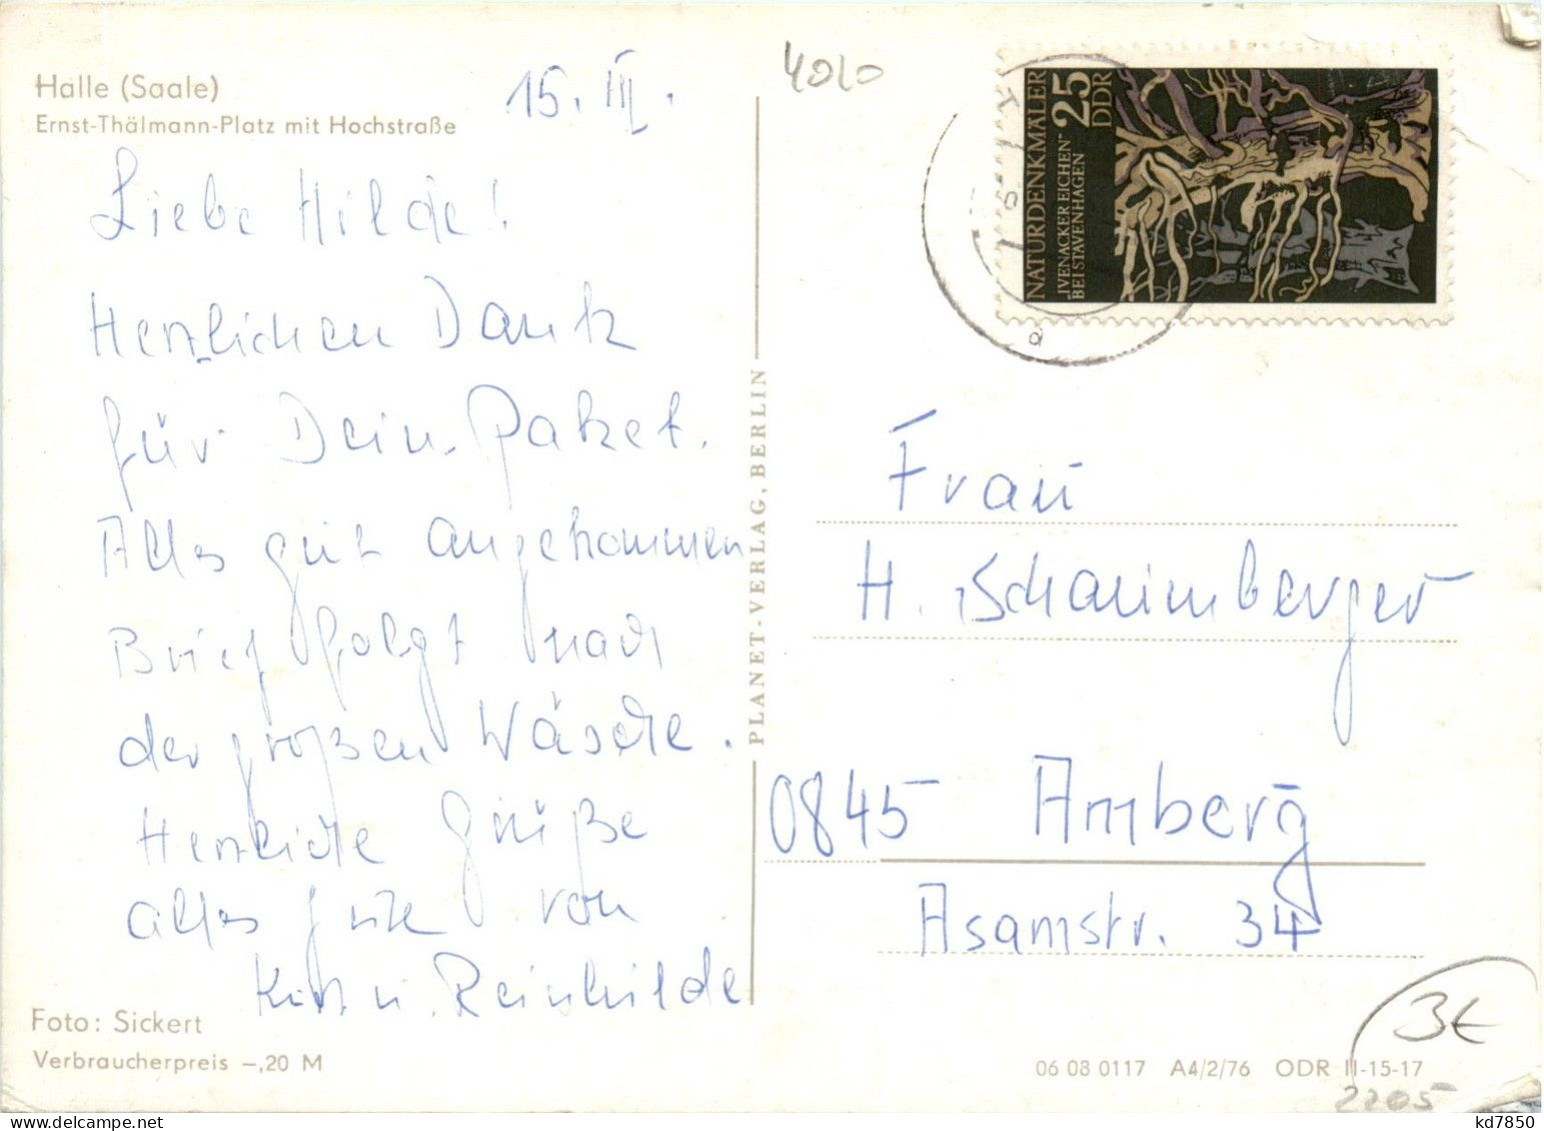 Halle (Saale)
Ernst-Thälmann-Platz mit Hochstraße
15. III.
Liebe Hilde!
Herzlichen Dank
für Dein Paket.
Alles gut angekommen
Brief folgt nach
der großen Wäsche.
Herzliche Grüße
alles gute von
Kurt u. Reinhilde
Foto: Sickert
Verbraucherpreis –,20 M
PLANET-VERLAG, BERLIN
4020
NATURDENKMÄLER
„IVENACKER EICHEN“
BEI STAVENHAGEN
25
DDR
a
Frau
H. Schaumberger
0845 Amberg
Asamstr. 34
3€
06 08 0117 A4/2/76 ODR II-15-17
2205
kd7850